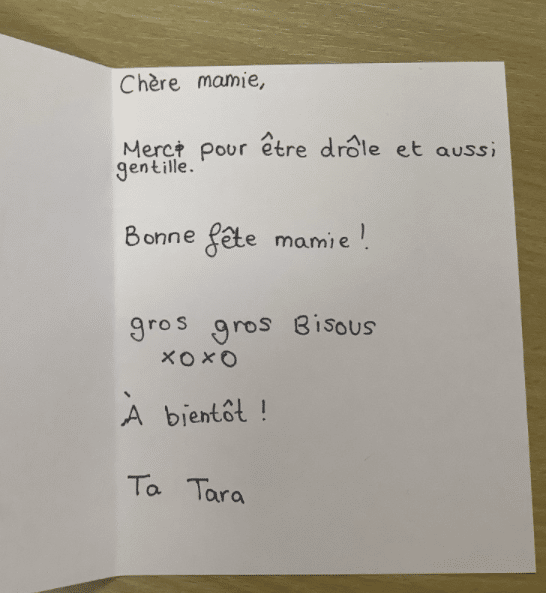 Chère mamie,
Merci pour être drôle et aussi
gentille.
Bonne fête mamie !
gros gros Bisous
xoxo
À bientôt !
Ta Tara